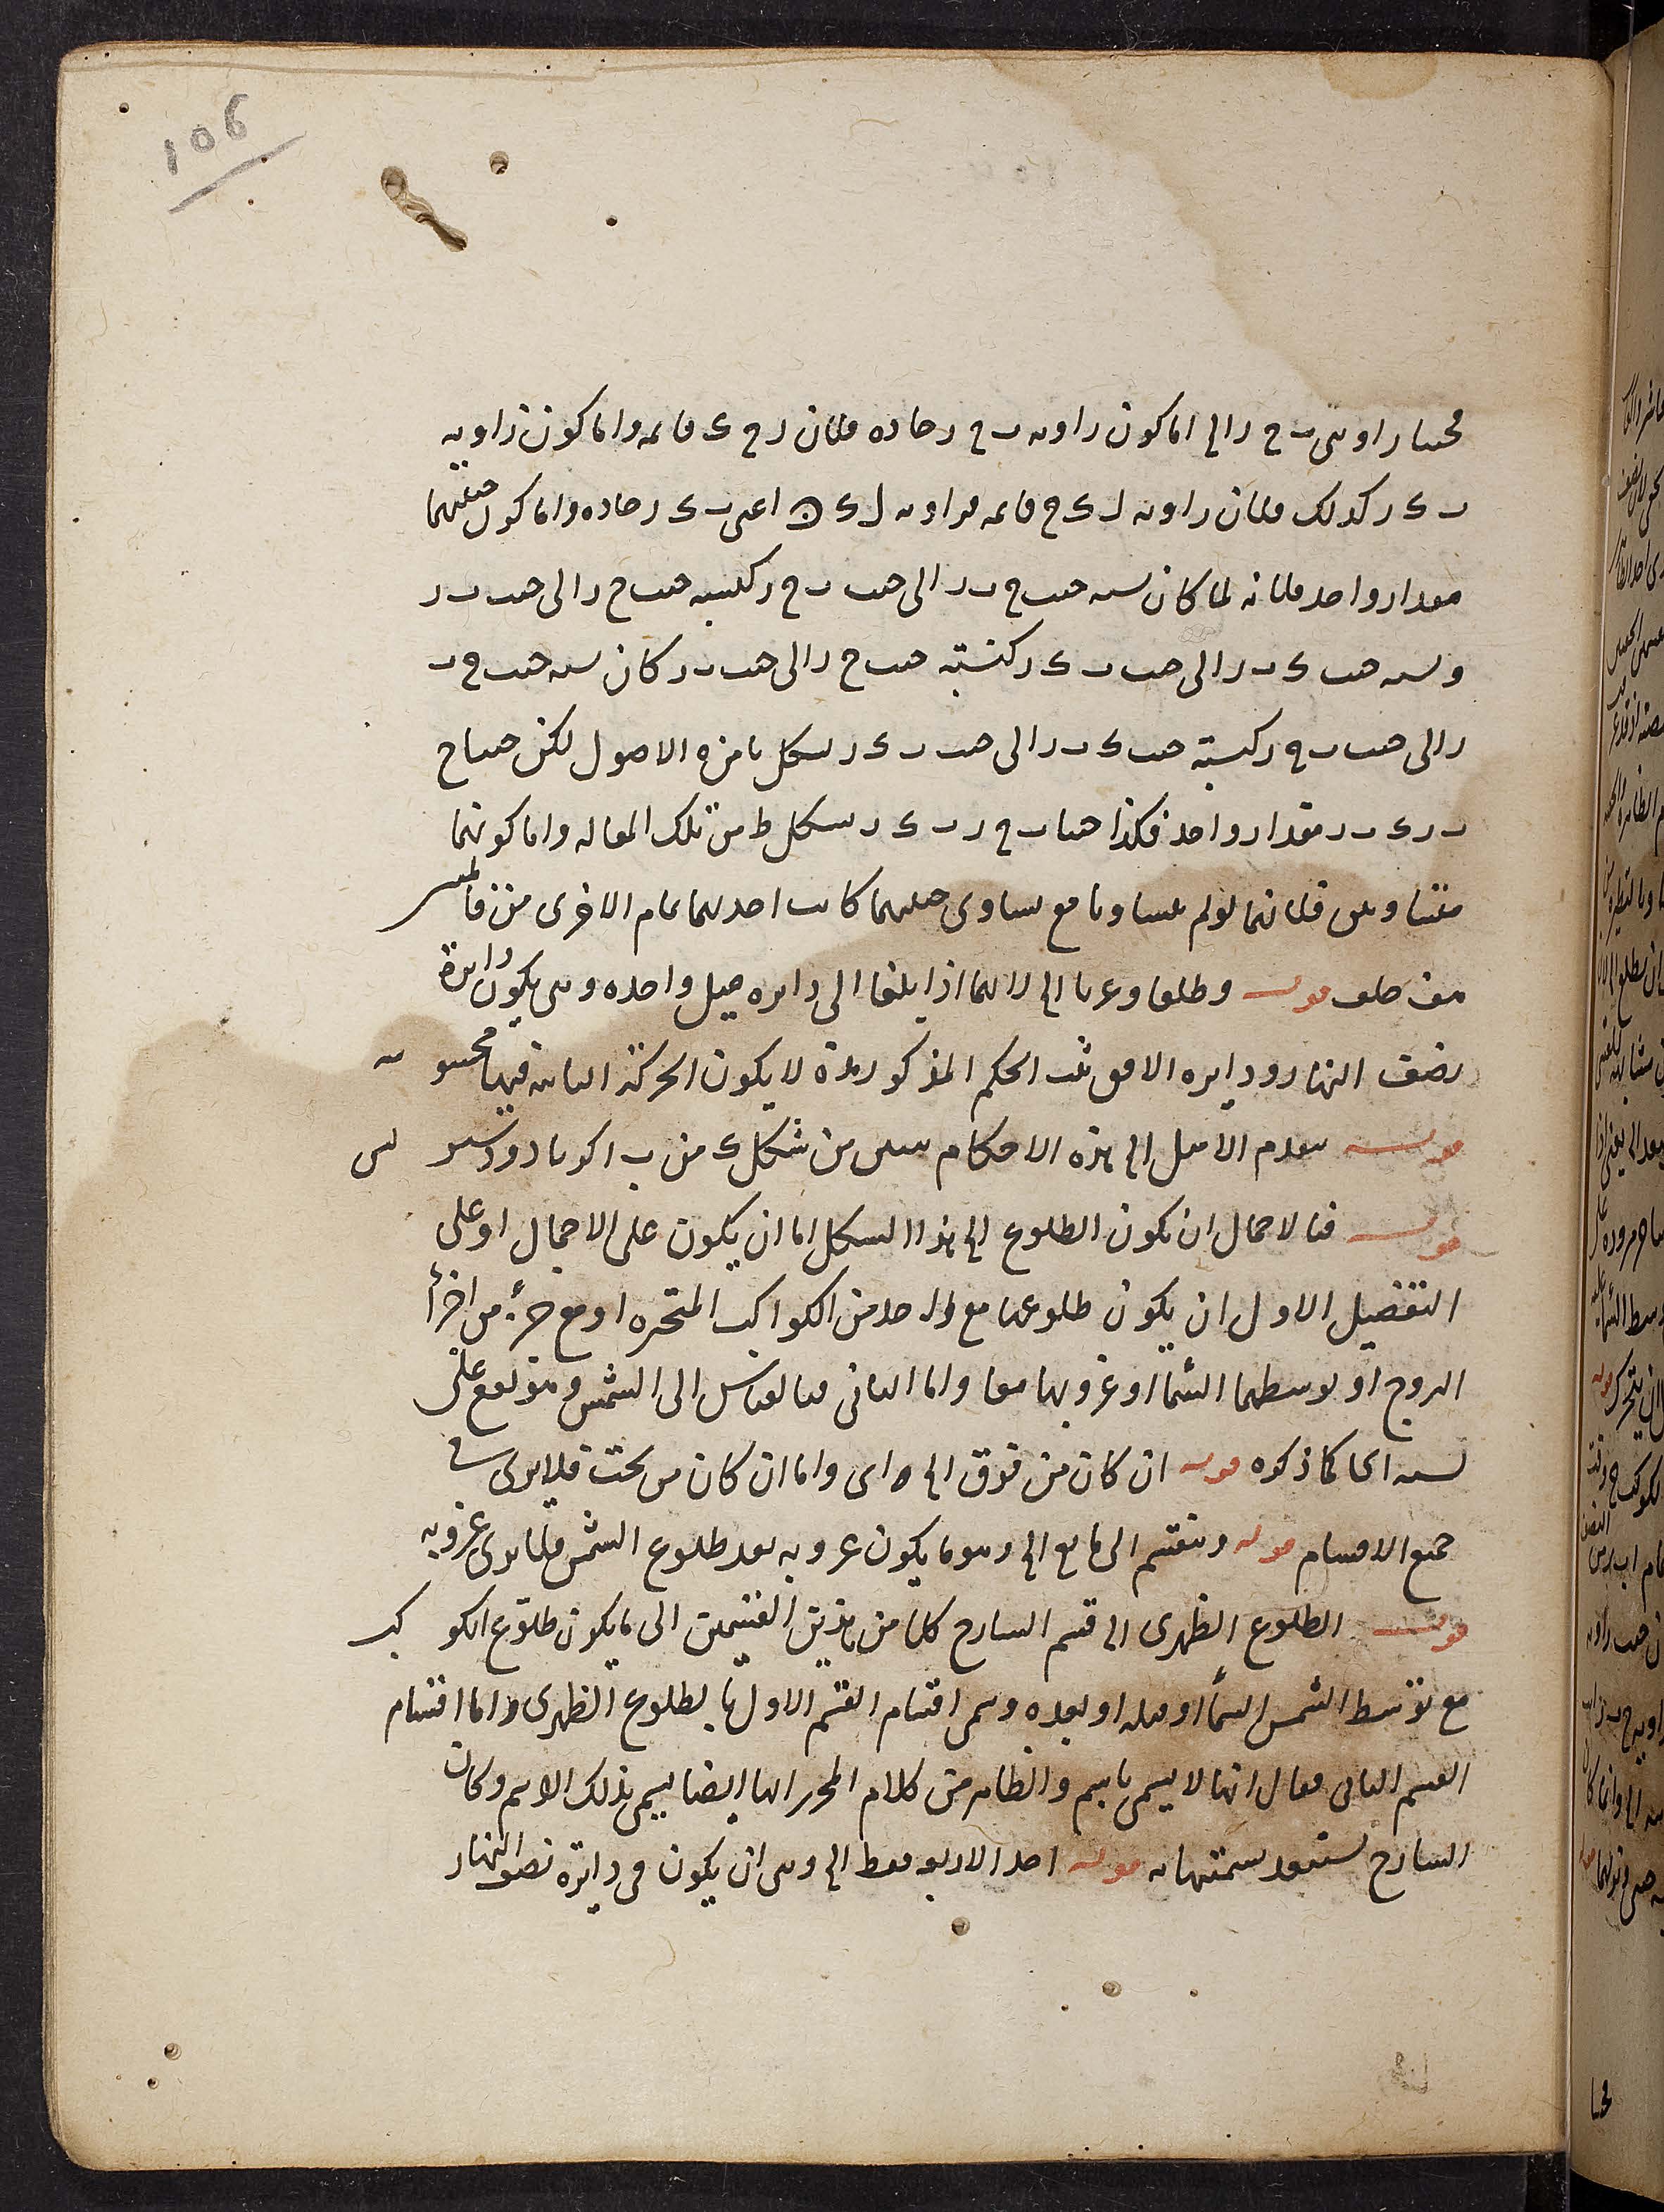 106
فجيبا زاويتي ب ح ر الى اما كون زاويه ب ح ر حاده فلان ر ح ى قايمه واما كون زاويه
ب ى ر كذلك فلان زاويه ل ى ح قايمه فزاويه ل ى ن اعنى ب ى ر حاده واما كون جيبيهما
مقدار واحد فلانه لما كان نسبه جيب ح ب ر الى جيب ب ح ر كنسبه جيب ح ر الى جيب ب ر
ونسبه جيب ى ب ر الى جيب ب ى ر كنسبة جيب ح ر الى جيب ب ر كان نسبه جيب ح ب
ر الى جيب ب ح ر كنسبة جيب ى ب ر الى جيب ب ى ر بشكل يا من ه الاصول لكن جيبا ح
ب ر ى ب ر مقدار واحد فكذا جيبا ب ح ر ب ى ر بشكل ط من تلك المقاله واما كونهما
متساويتين فلانهما لو لم يتساويا مع تساوى جيبيهما كانت احديهما تمام الاخرى من قايمتين
هف خلف قوله وطلعا وغربا الى لانهما اذا بلغا الى دايره ميل واحده وهى يكون دايرة
نصف النهار ودايره الافق ثبت الحكم المذكور مدة لا يكون الحركة الثانيه فيها محسوسه
قوله بعدم الاميل الى هذه الاحكام تبين من شكل ى من ب اكر ثاودوسيوس
قوله فبالاجمال ان يكون الطلوع الى هذا الشكل اما ان يكون على الاجمال او على
التفضيل الاول ان يكون طلوعها مع واحد من الكواكب المتحيره او مع جزء من اجزأ
البروج او توسطهما السمأ او غروبها معا واما الثانى فبالقياس الى الشمس وهو يقع على
تسعه انحا كما ذكره قوله ان كان من فوق الى ه اى واما ان كان من تحت فلا يرى فى
جميع الاقسام قوله وينقسم الى ما يع الى وهو ما يكون غروبه بعد طلوع الشمس فلما يرى غروبه
قوله الطلوع الظهرى الى قسم الشارح كلا من هذين القسمين الى ما يكون طلوع الكوكب
مع توسط الشمس السمأ او قبله او بعده وسمى اقسام القسم الاول بالطلوع الظهرى واما اقسام
القسم الثانى فقال انها لا يسمى باسم والظاهر من كلام المحرر انها ايضا يسمى بذلك الاسم وكان
الشارح يستبعد تسميتها به قوله احد الاربعه فقط الى وهى ان يكون فى دايرة نصف النهار